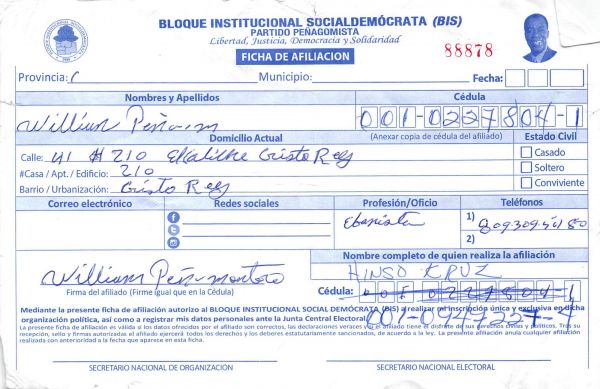 BLOQUE INSTITUCIONAL SOCIALDEMÓCRATA (BIS)
PARTIDO PEÑAGOMISTA
Libertad, Justicia, Democracia y Solidaridad
FICHA DE AFILIACION
88878
Provincia: Municipio: Fecha:
Nombres y Apellidos Cédula
William Peña 001-0227804-1
Domicilio Actual (Anexar copia de cédula del afiliado) Estado Civil
Calle: # 210 Cristo Rey Casado
#Casa / Apt. / Edificio: 210 Soltero
Barrio / Urbanización: Cristo Rey Conviviente
Correo electrónico Redes sociales Profesión/Oficio Teléfonos
Ebanista 1)
2)
Nombre completo de quien realiza la afiliación
William Peña Montero HINSO KRUZ
Firma del afiliado (Firme igual que en la Cédula) Cédula: 001 0227804-1
Mediante la presente ficha de afiliación autorizo al BLOQUE INSTITUCIONAL SOCIAL DEMÓCRATA (BIS) a realizar mi inscripción única y exclusiva en dicha
organización política, así como a registrar mis datos personales ante la Junta Central Electoral. 001-0947227-7
La presente ficha de afiliación es válida si los datos ofrecidos por el afiliado son correctos, las declaraciones veraces y si el afiliado tiene el disfrute de sus derechos civiles y políticos. Tras su
recepción, sello y firmas autorizadas el afiliado ejercerá todos los derechos y los deberes estatutariamente sancionados, de acuerdo a la ley. La presente afiliación anula cualquier afiliación
realizada con anterioridad a la fecha que aparece en esta ficha.
SECRETARIO NACIONAL DE ORGANIZACIÓN SECRETARIO NACIONAL ELECTORAL